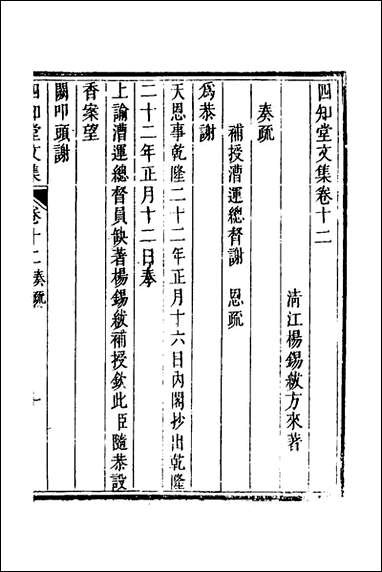 四知堂文集卷十二
清江楊錫紱方來著
奏疏
補授漕運總督謝　恩疏
爲恭謝
天恩事乾隆二十二年正月十六日內閣抄出乾隆
二十二年正月十二日奉
上諭漕運總督員缺著楊錫紱補授欽此臣隨恭設
香案望
闕叩頭謝
四知堂文集
卷十二
奏疏
一